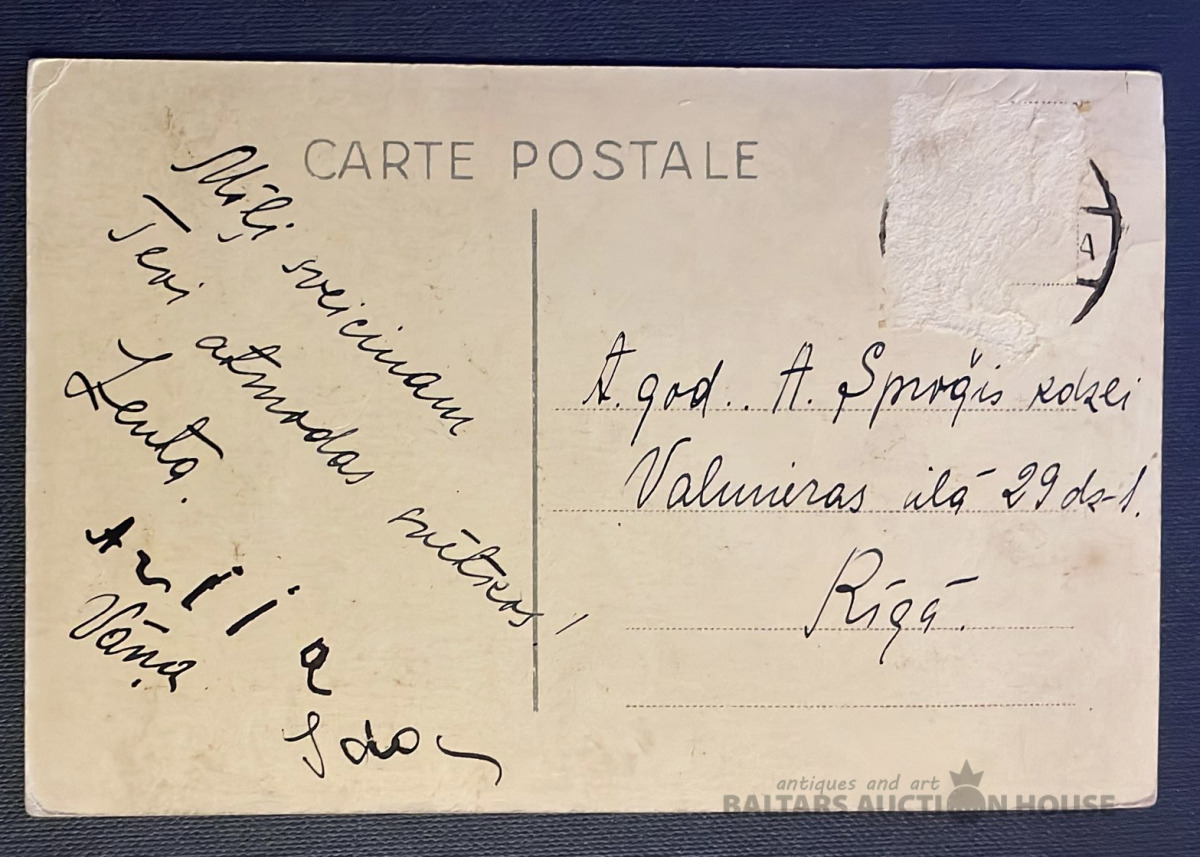 CARTE POSTALE
Mīļi sveicinam
Tevi atmodas svētkos!
Zenta.
Vāņa
Ida
A. god. A. Sproģis kdzei
Valmieras ielā 29 dz-1.
Rīgā.
antiques and art
BALTARS AUCTION HOUSE